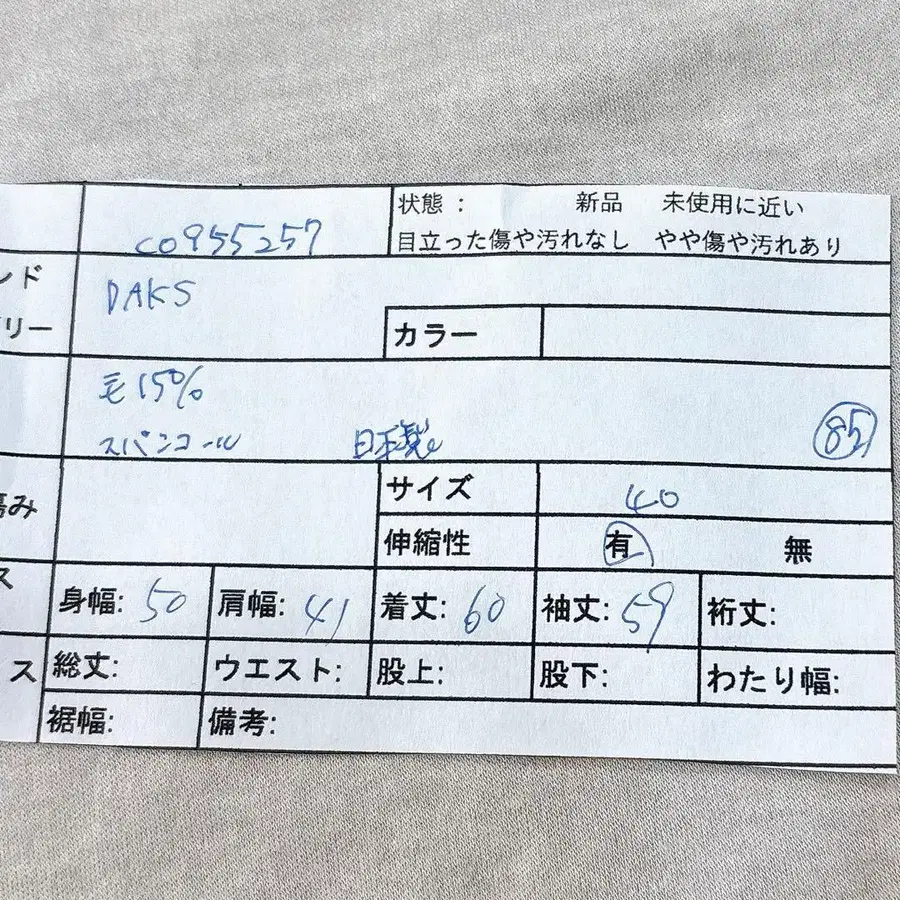 CO955257
状態： 新品 未使用に近い
目立った傷や汚れなし やや傷や汚れあり
ンド
DAKS
リー
カラー
毛15%
スパンコール 日本製 85
傷み
サイズ 40
伸縮性 有 無
ス
身幅: 50 肩幅: 41 着丈: 60 袖丈: 59 裄丈:
ス
総丈: ウエスト: 股上: 股下: わたり幅:
裾幅: 備考: